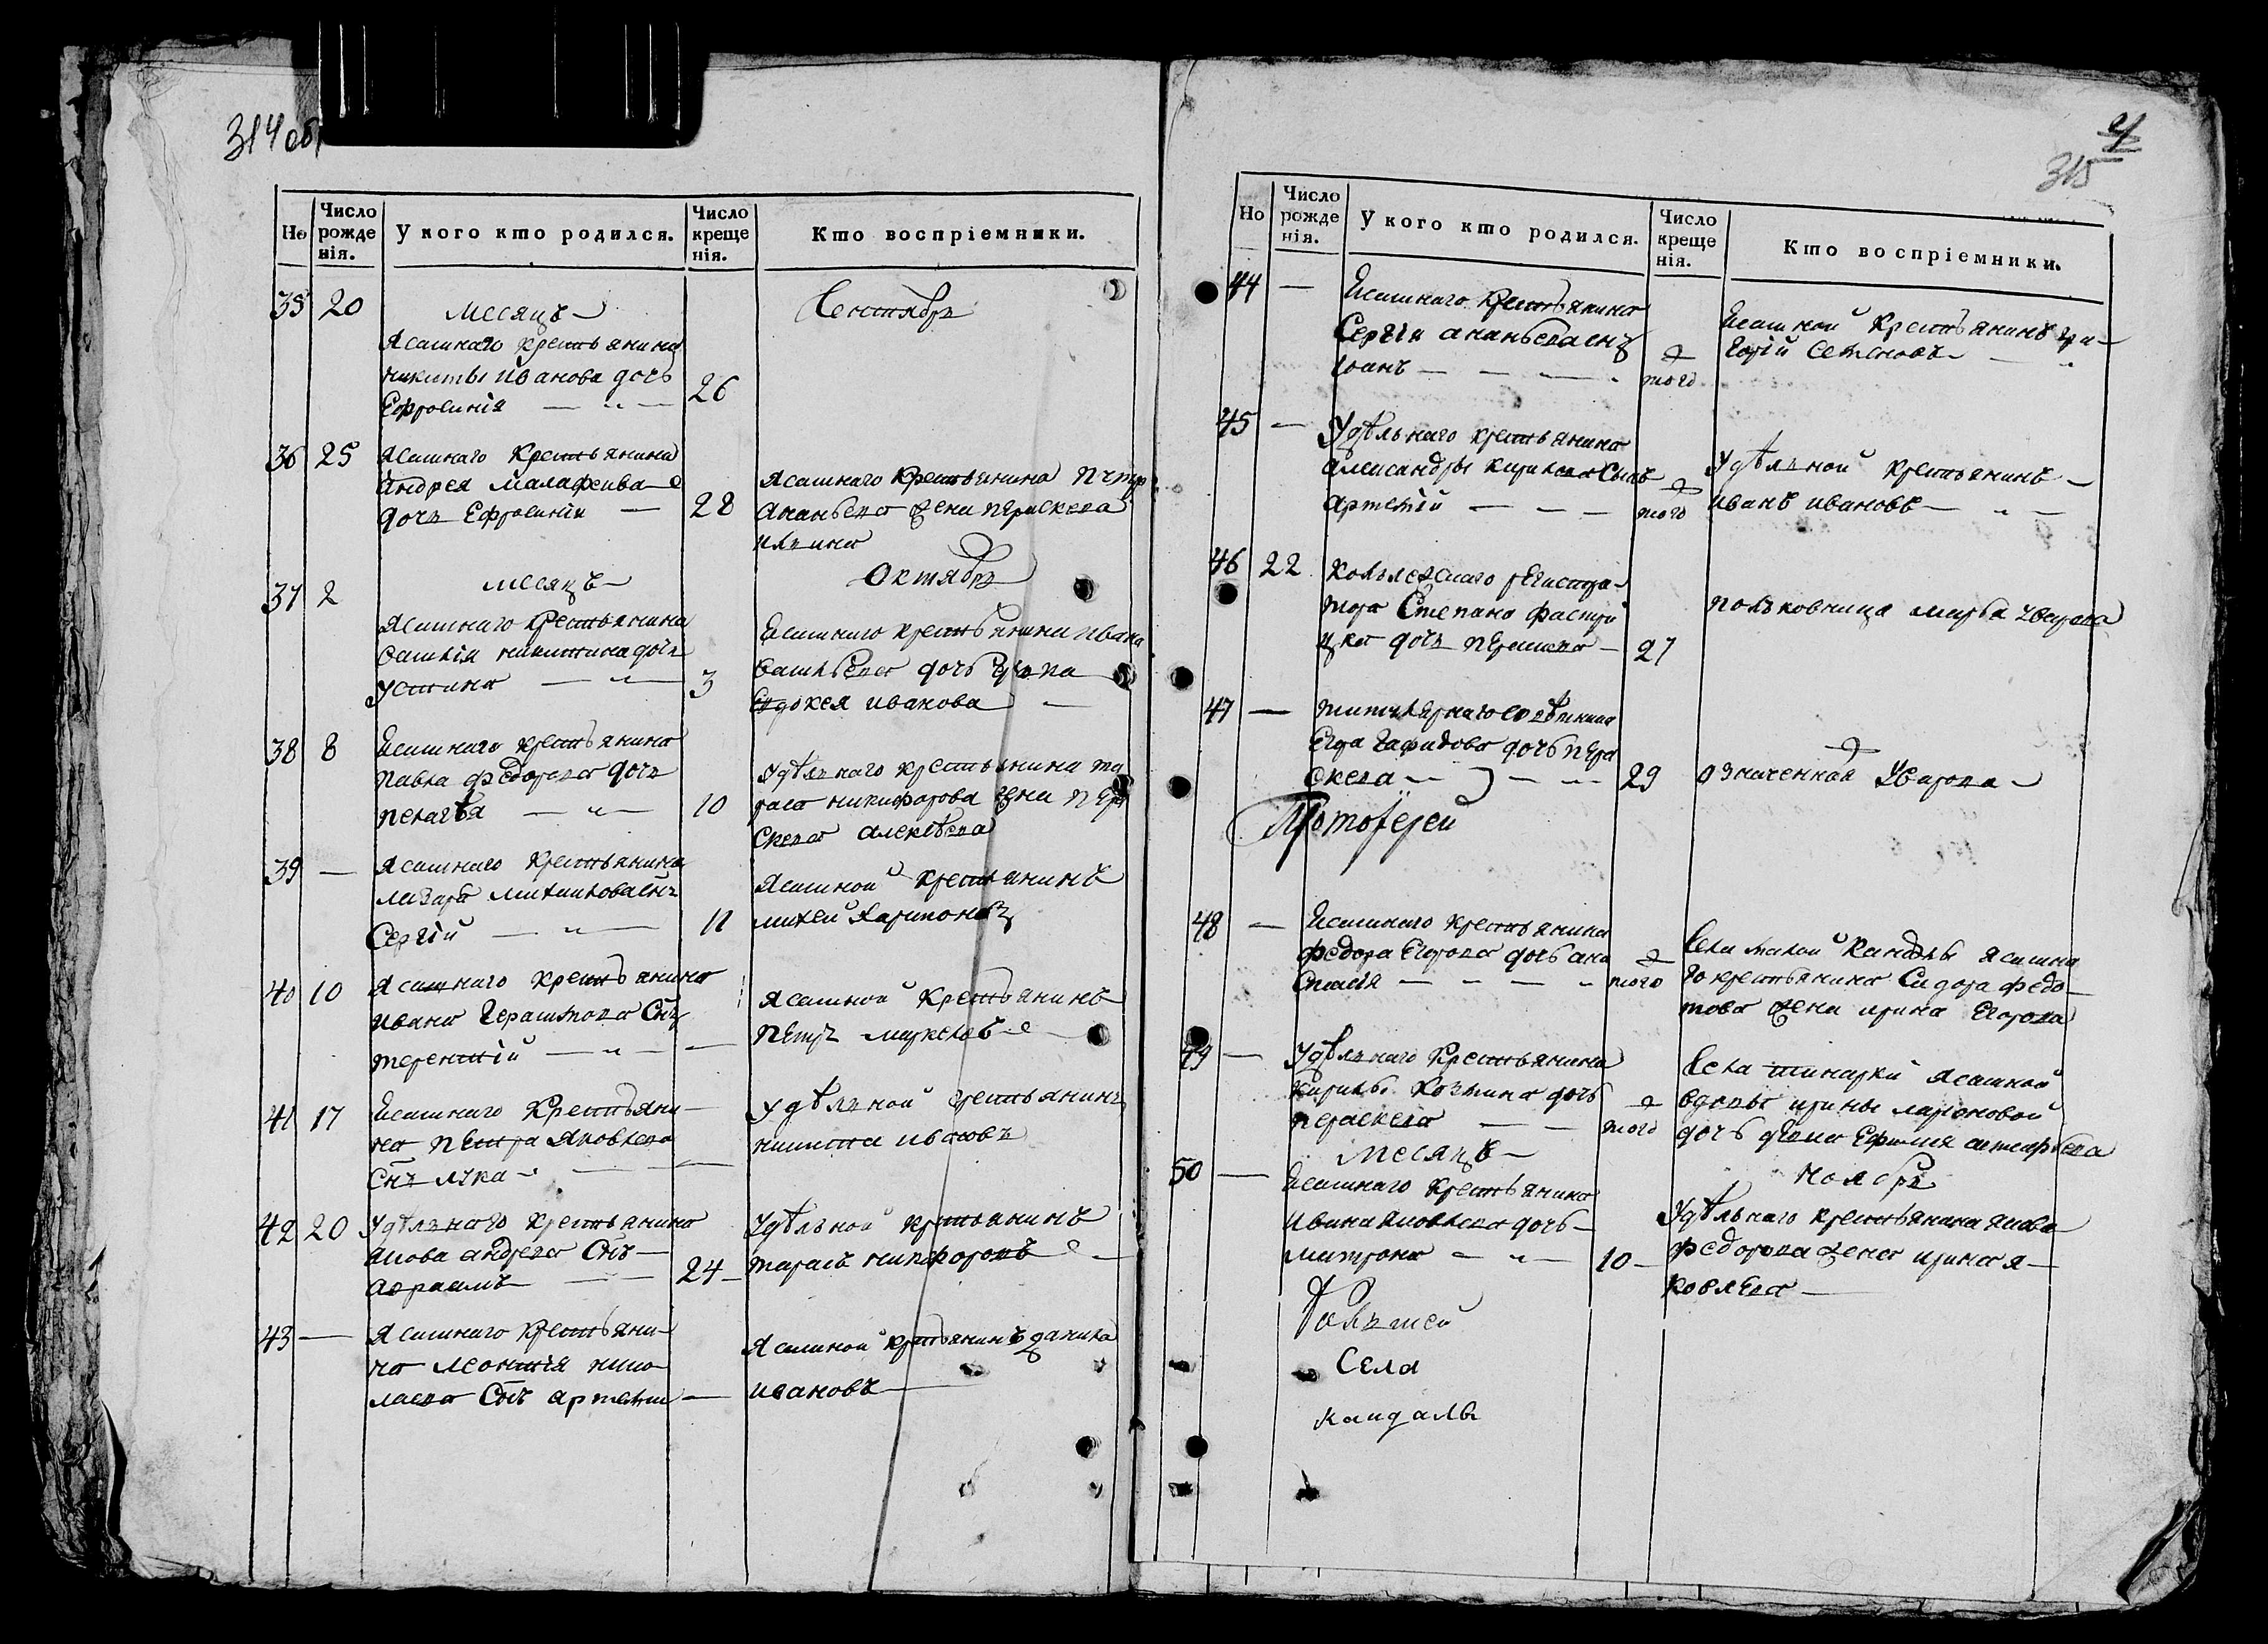 314об
Но
Число рожденія.
У кого кто родился.
Число крещенія.
Кто воспріемники.
35 20 Месяцъ Сентябрь
Ясашнаго крестьянина
никиты иванова дочь
Ефросинія 26
36 25 Ясашнаго крестьянина
андрея малафеива
дочь Ефросинія 28
Ясашнаго крестьянина петр
ананьева жена параскева
ильина
37 2 месяцъ Октябрь
Ясашнаго крестьянина
василія никитина дочь
устина 3
Ясашнаго крестьянина ивана
васильева дочь
Евдокея иванова
38 8 Ясашнаго крестьянина
павла федорова дочь
пелагѣа 10
Удѣльнаго крестьянина та
раса никифорова жена пера
скева алексѣева
39 — Ясашнаго крестьянина
лазаря михаилова снъ
Сергій 11
Ясашной крестьянинъ
михей Харитоновъ
40 10 Ясашнаго крестьянина
ивана герасимова Снъ
терентій —
Ясашной крестьянинъ
петръ маркеловъ
41 17 Ясашнаго крестьяни
на петра яковлева
Снъ лука —
Удѣльной крестьянинъ
никита ивановъ
42 20 Удѣльнаго крестьянина
якова андрева Снъ
авраамъ 24
Удѣльной крестьянинъ
тарасъ никифоровъ
43 — Ясашнаго крестьяни
на леонтія нико
лаева Снъ артемий —
Ясашной крестьянинъ данила
ивановъ
315
Но
Число рожденія.
У кого кто родился.
Число крещенія.
Кто воспріемники.
44 — Ясашнаго крестьянина
Сергія ананьева снъ
іоанъ того
Ясашной крестьянинъ гри
горій Семеновъ
45 — Удѣльнаго крестьянина
александры кирилова Сынъ
артемій того
Удѣльной крестьянинъ
иванъ ивановъ
46 22 Колѣжскаго регистра
тора Степана
дочь 27
полъковница марѳа уварова
47 — титулярнаго совѣтника
Егора дочь пера
скева 29
означенная Уварова
Протоіерей
48 — Ясашнаго крестьянина
федора Егорова дочь ана
стасія того
Села малой Кандалы ясашна
го крестьянина Сидора федо
това жена ирина Егорова
49 — Удѣльнаго Крестьянина
кирилы Козмина дочь
пераскева того
Села тинарки ясашной
вдовы ирины ларионовой
дочь девка Ефимия
50 — месяцъ Ноябрь
Ясашнаго крестьянина
ивана яковлева дочь
матрона 10
Удѣльнаго крестьянина якова
федорова жена ирина я
ковлева
Села
кандалы